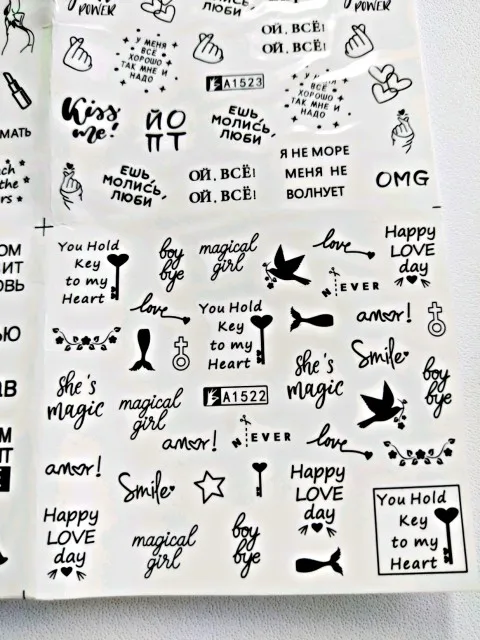 POWER
МОЛИСЬ,
ЛЮБИ
POWER
ОЙ, ВСЁ!
ОЙ, ВСЁ!
У МЕНЯ
ВСЕ
ХОРОШО
ТАК МНЕ И
НАДО
A1523
У МЕНЯ
ВСЕ
ХОРОШО
ТАК МНЕ И
НАДО
Kiss
me!
ЙО
ПТ
ЕШЬ,
МОЛИСЬ,
ЛЮБИ
МАТЬ
ЕШЬ,
МОЛИСЬ,
ЛЮБИ
ОЙ, ВСЁ!
ОЙ, ВСЁ!
Я НЕ МОРЕ
МЕНЯ НЕ
ВОЛНУЕТ
OMG
You Hold
Key
to my
Heart
boy
bye
magical
girl
love
Happy
LOVE
day
NEVER
love
You Hold
Key
to my
Heart
amor!
she's
magic
magical
girl
A1522
she's
magic
Smile
boy
bye
amor!
NEVER
love
amor!
Smile
Happy
LOVE
day
Happy
LOVE
day
magical
girl
boy
bye
You Hold
Key
to my
Heart